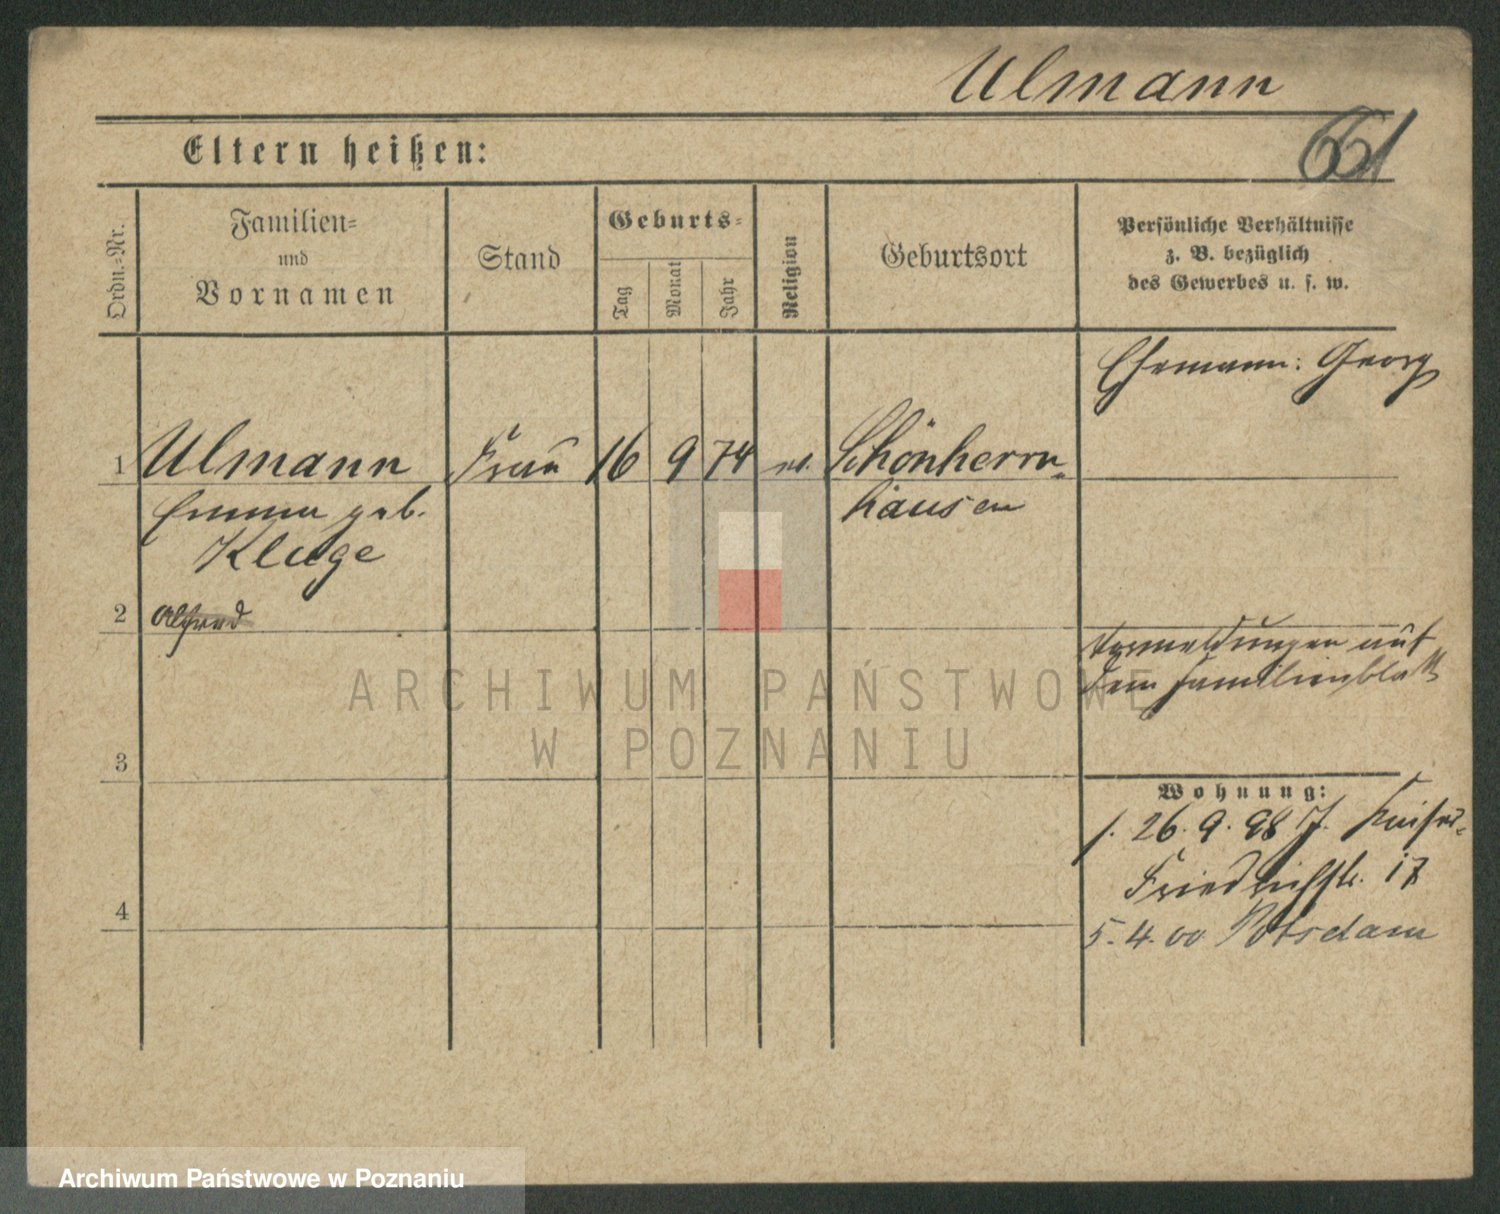 Ulmann
661
Eltern heißen:
Ordn.-Nr.
Familien-
und
Vornamen
Stand
Geburts-
Tag
Monat
Jahr
Religion
Geburtsort
Persönliche Verhältnisse
z. B. bezüglich
des Gewerbes u. s. w.
Ehemann: Georg
1 Ulmann Frau 16 9 74 ev. Schönherrn-
Emma geb. hausen
Kluge
2 Alfred
Vermeldungen auf
dem Familienblatt
ARCHIWUM PAŃSTWOWE
W POZNANIU
3
Wohnung:
26.9.98 J. Kaiser-
Friedrichstr. 17
4
5.4.00 Potsdam
Archiwum Państwowe w Poznaniu